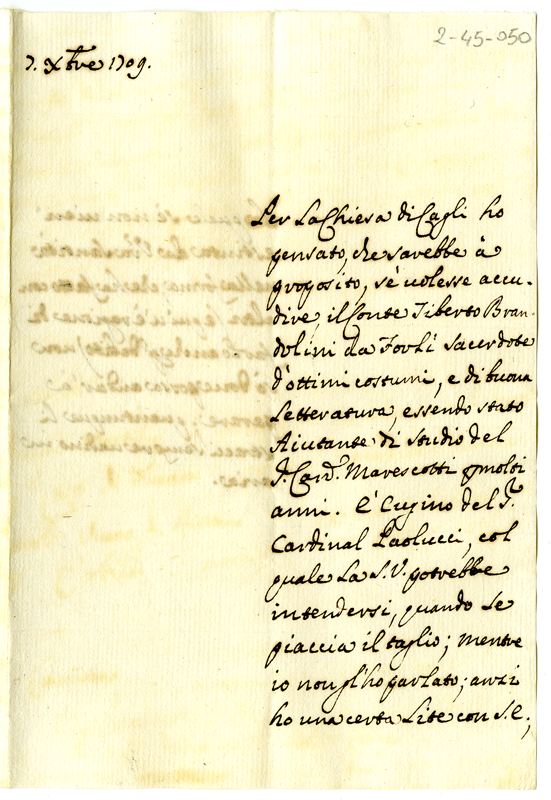 2-45-050
7. Xbre 1709.
Per la Chiesa di Cagli ho
pensato, che sarebbe à
proposito, sè uolesse accu-
dire, il Conte Tiberto Bran-
dolini da Forlì sacerdote
d'ottimi costumi, e di buona
letteratura, essendo stato
Aiutante di studio del
S. Card. Marescotti p molti
anni. È Cugino del S.r
Cardinal Paolucci, col
quale La S.V. potrebbe
intendersi, quando le
piaccia il taglio; mentre
io non gl'ho parlato; anzi
ho una certa lite con S.E.;